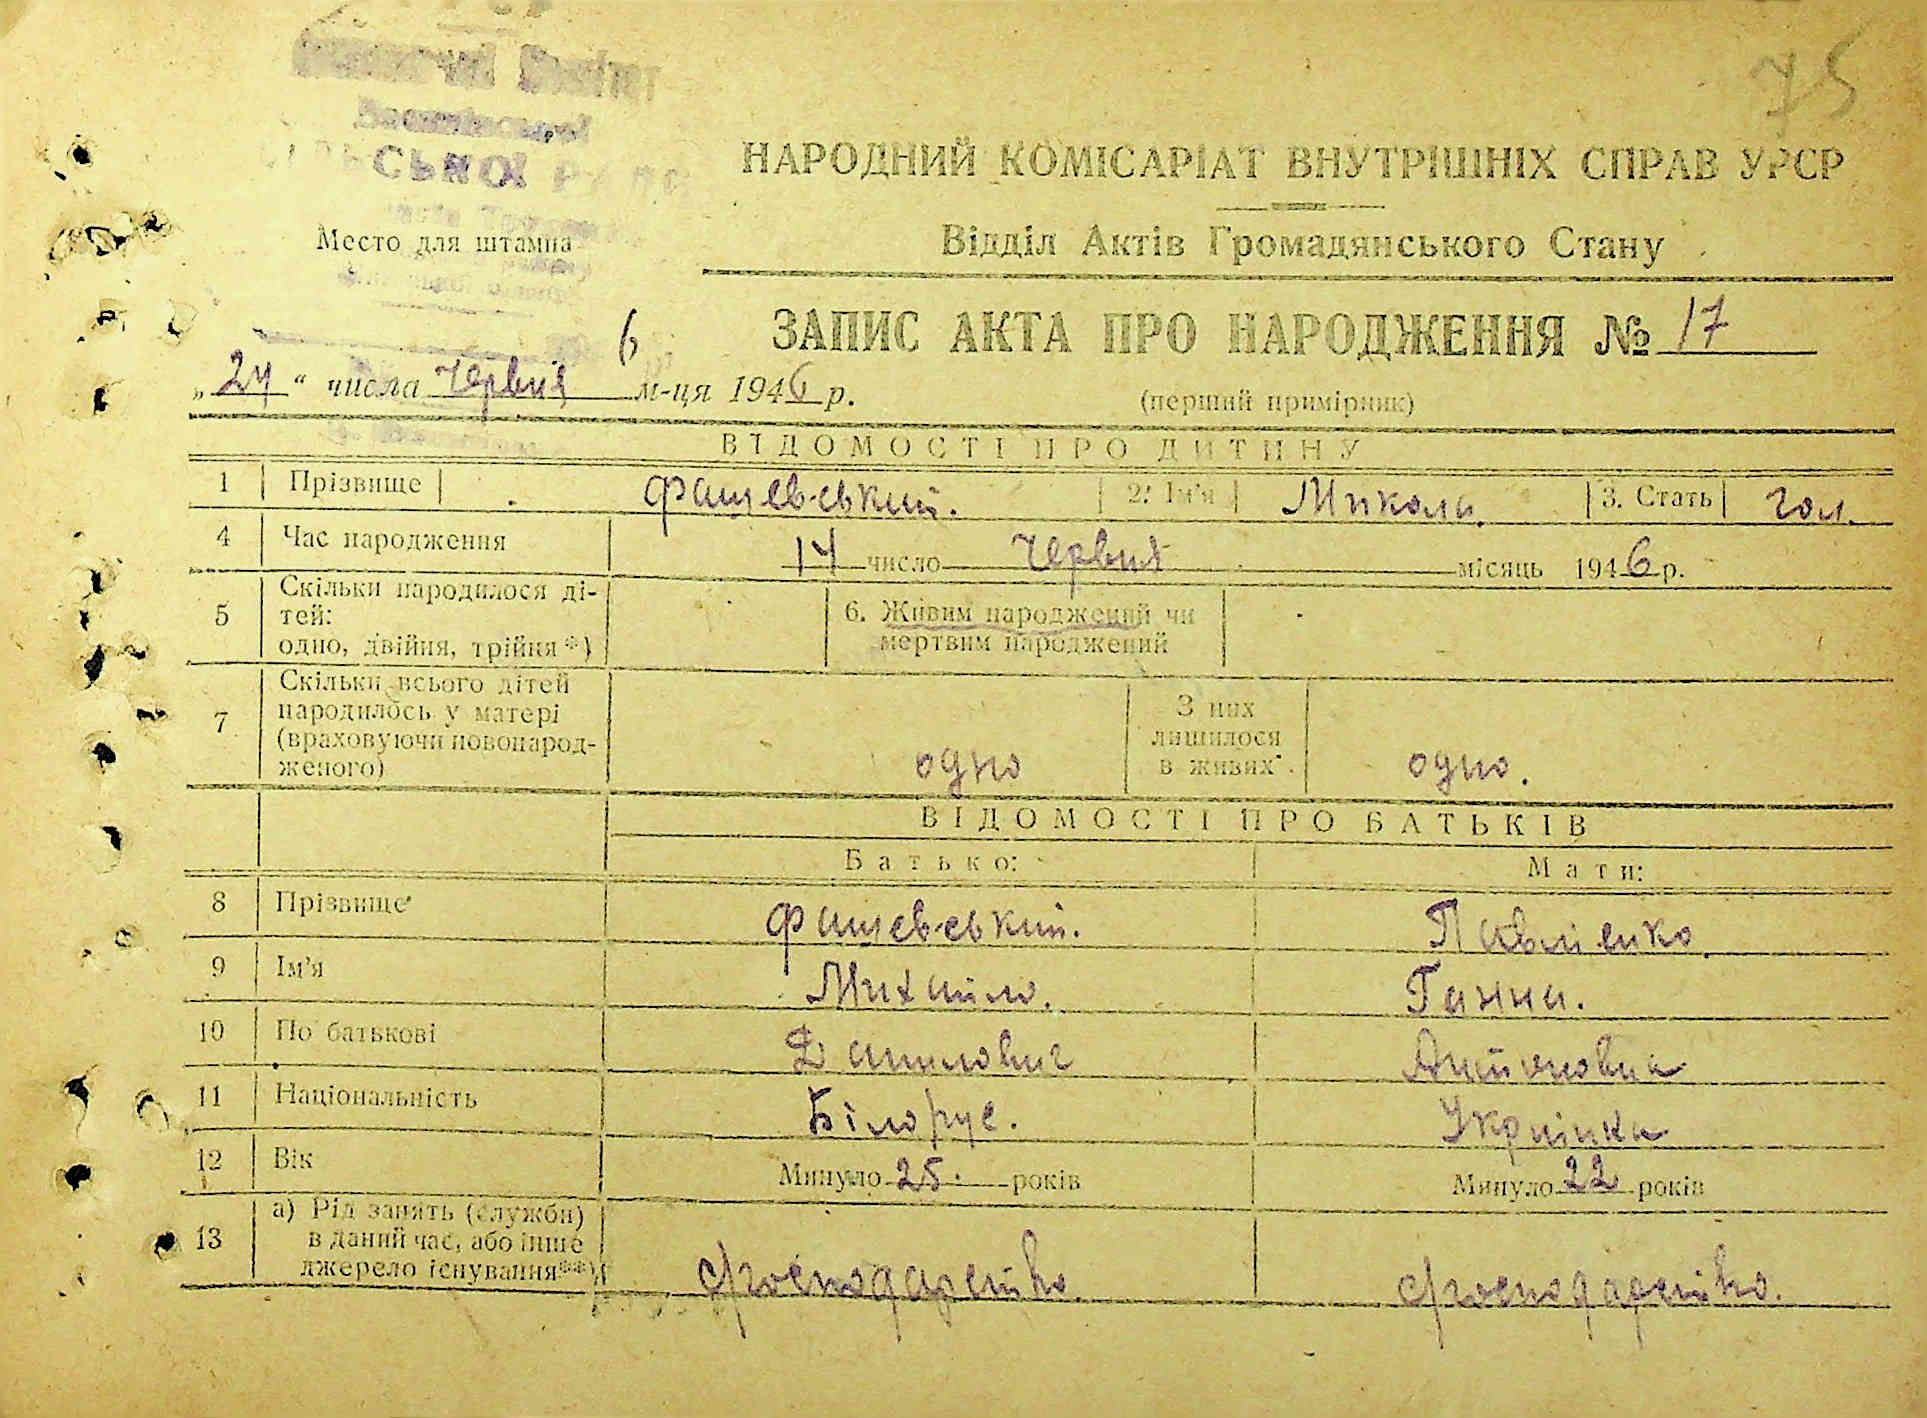 75
СЬКОЇ
НАРОДНИЙ КОМІСАРІАТ ВНУТРІШНІХ СПРАВ УРСР
Место для штампа
Відділ Актів Громадянського Стану
ЗАПИС АКТА ПРО НАРОДЖЕННЯ № 17
6
„24“ числа Червня м-ця 1946 р.
(перший примірник)
ВІДОМОСТІ ПРО ДИТИНУ
1 Прізвище Фащевський. 2. Ім'я Микола. 3. Стать чол.
4 Час народження 14 число Червня місяць 1946 р.
5 Скільки народилося ді-
тей:
одно, двійня, трійня *)
6. Живим народжений чи
мертвим народжений
7 Скільки всього дітей
народилось у матері
(враховуючи новонарод-
женого)
одно
З них
лишилося
в живих
одно.
ВІДОМОСТІ ПРО БАТЬКІВ
Батько: Мати:
8 Прізвище Фащевський. Павленко
9 Ім'я Михайло. Ганна.
10 По батькові Данилович Антоновна
11 Національність Білорус. Українка
12 Вік Минуло 25. років Минуло 22 років
13 а) Рід занять (служби)
в даний час, або інше
джерело існування**)
с/господарство. с/господарство.